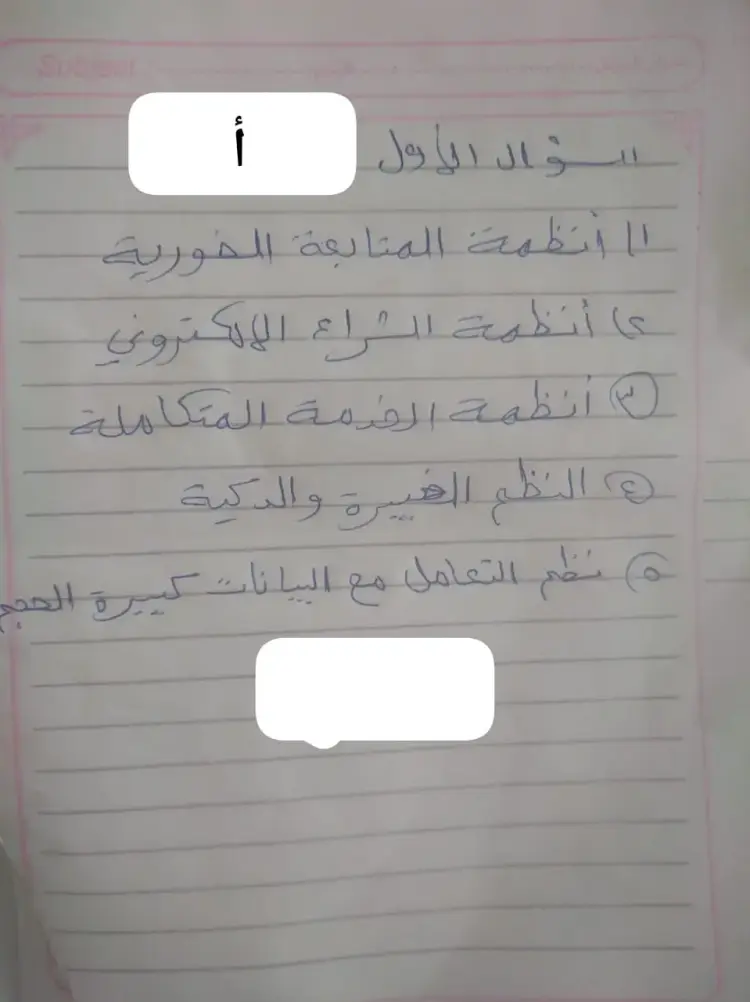 Subject
السؤال الأول أ
١١ أنظمة المتابعة الفورية
٢) أنظمة الشراء الإلكتروني
٣) أنظمة الخدمة المتكاملة
٤) النظم الخبيرة والذكية
٥) نظم التعامل مع البيانات كبيرة الحجم